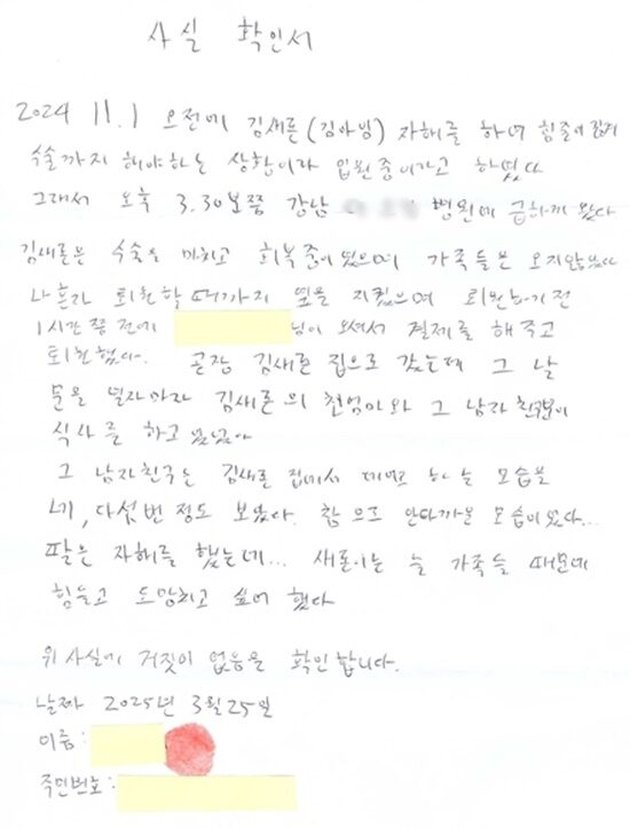 사실 확인서
2024 11.1 오전에 김새론(김아임) 자해를 하여 힘줄이 끊겨
수술까지 해야하는 상황이라 입원중이라고 하였다
그래서 오후 3.30분쯤 강남 병원에 급하게 갔다
김새론은 수술을 마치고 회복중이었으며 가족들은 오지않았다
나혼자 퇴원할때까지 옆을 지켰으며 퇴원하기전
1시간쯤 전에 님이 오셔서 결제를 해주고
퇴원했다. 곧장 김새론 집으로 갔는데 그 날
문을 열자마자 김새론의 친엄마와 그 남자친구분이
식사를 하고 있었다
그 남자친구는 김새론 집에서 데면 하는 모습을
네, 다섯번 정도 보았다. 참으로 안타까운 모습이었다...
딸은 자해를 했는데... 새론이는 늘 가족들 때문에
힘들고 도망치고 싶어 했다
위 사실에 거짓이 없음을 확인합니다.
날짜 2025년 3월25일
이름:
주민번호: